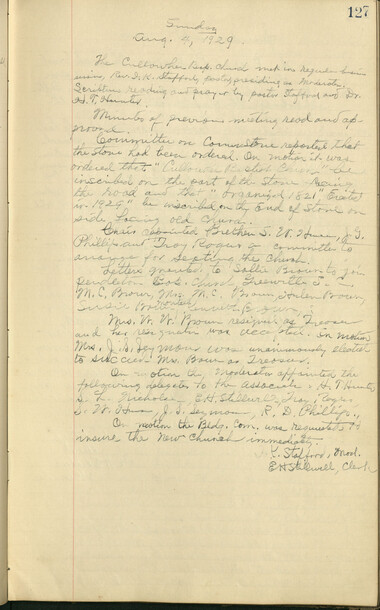 127
Sunday
Aug. 4, 1929.
The Cullowhee Bap. Church met in regular busi-
ness, Rev. I. K. Stafford, pastor, presiding as Moderator.
Scripture reading and prayer by pastor Stafford and Dr.
H. T. Hunter.
Minutes of previous meeting read and ap-
proved.
Committee on Cornerstone reported that
the stone had been ordered. On motion it was
ordered that "Cullowhee Baptist Church" be
inscribed on the part of the stone facing
the road and that "Organized 1821, Erected
in 1929" be inscribed on the End of Stone on
side facing old Church.
appointed Brethen D. W. Hines, J. S.
Phillips and Troy Rogers a committee to
arrange for the Church.
Letters granted to Sallie Brown to join
Bap. Church,
M. C. Brown, Mrs. M. C. Brown, Brown,
Brown.
Mrs. W. W. Brown resigned as Treasurer
and her resignation was accepted. On motion
Mrs. J. S. Seymour was unanimously elected
to succeed Mrs. Brown as Treasurer.
On motion the Moderator appointed the
following delegates to the Association: H. T. Hunter,
S. L. Nicholson, E. H. Stillwell, Troy Rogers,
D. W. Hines, J. S. Seymour, R. D. Phillips.
On motion the Bldg. Com. was requested to
insure the New Church immediately.
I. K. Stafford, Mod.
E H Stillwell, Clerk